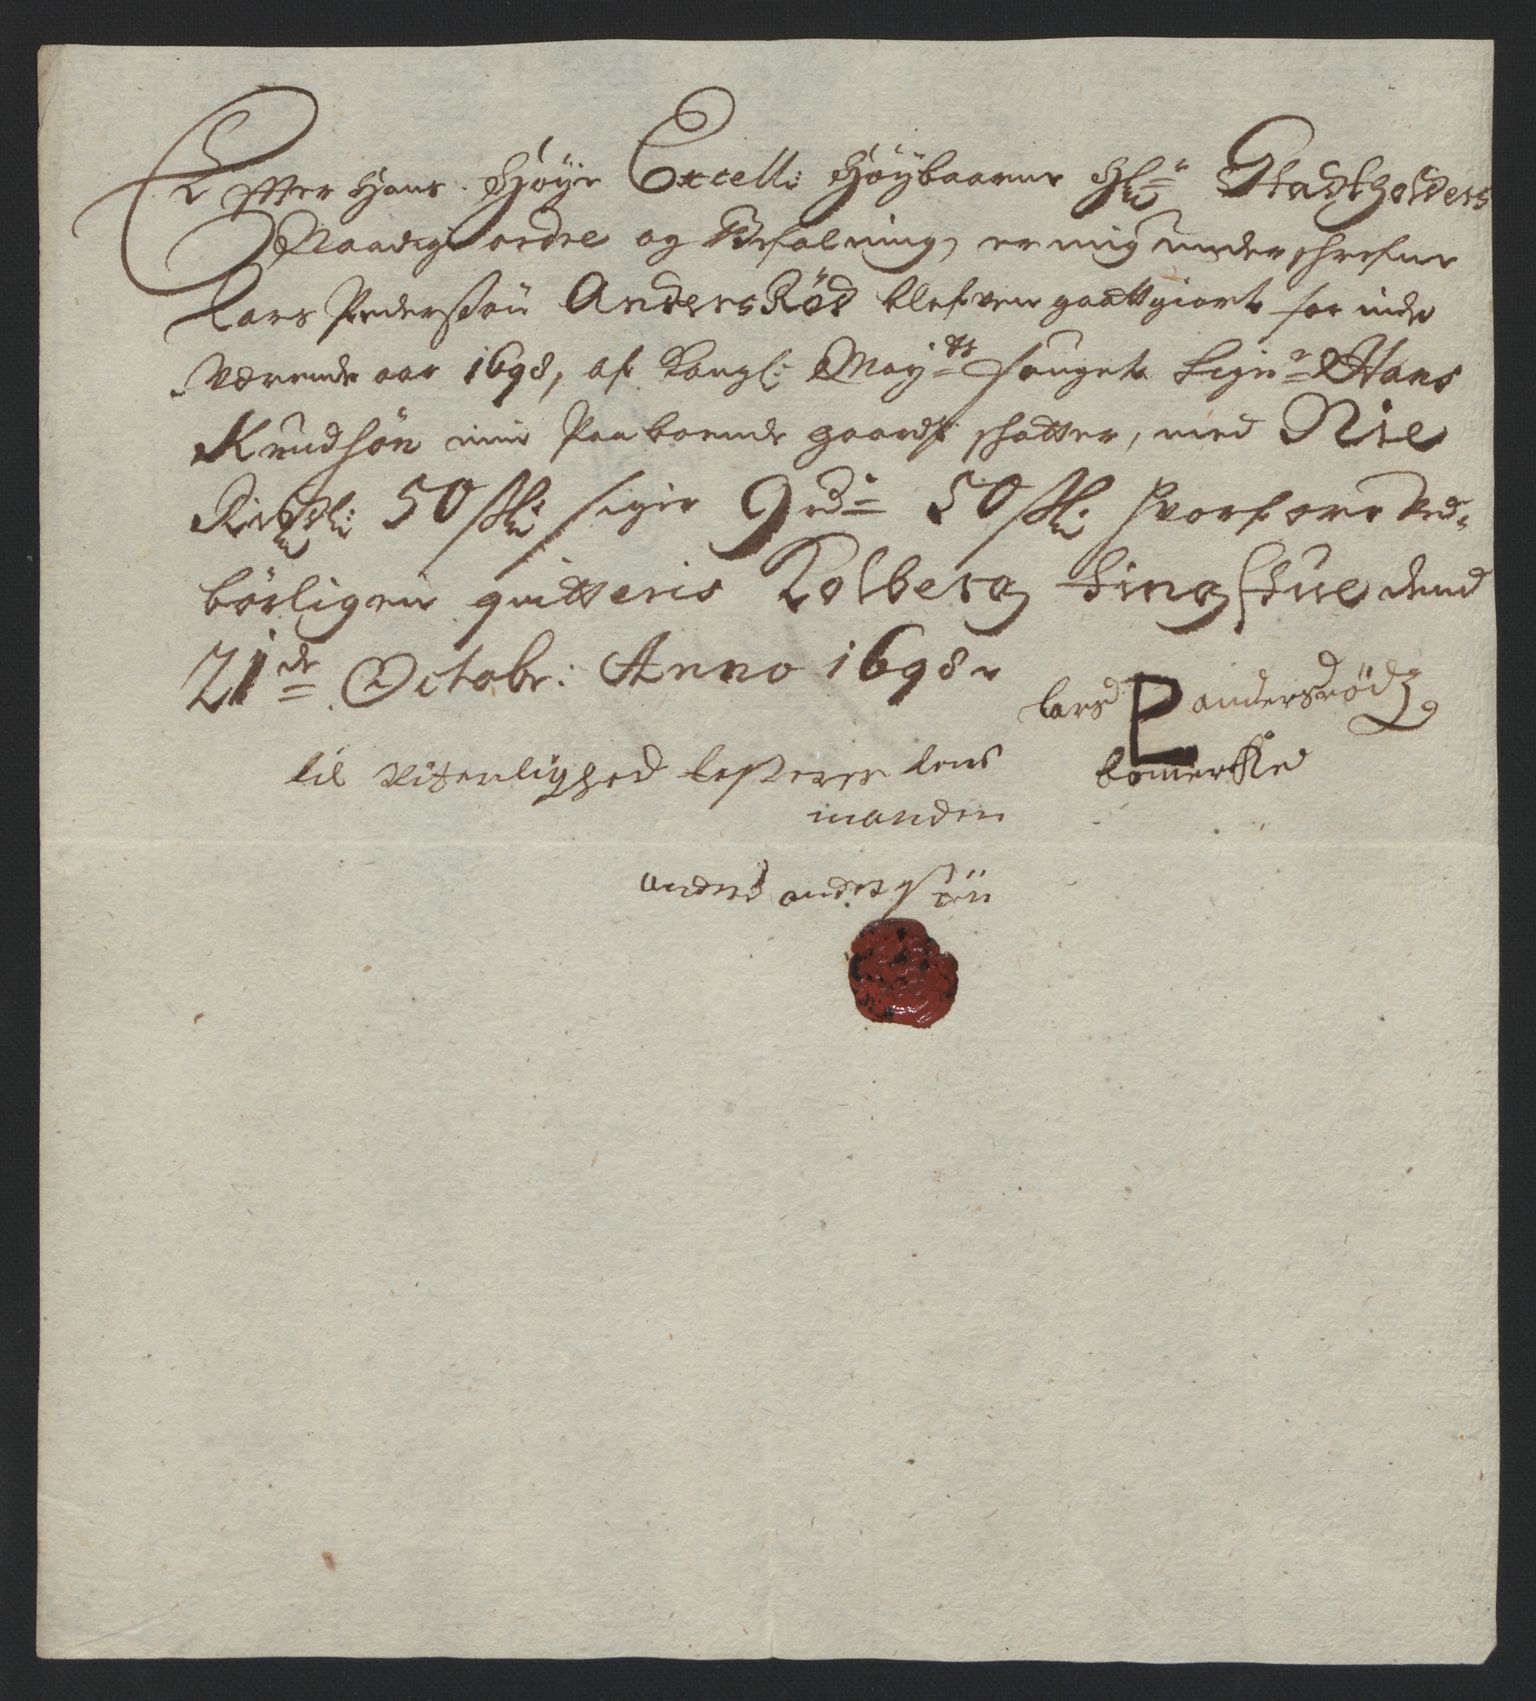 Effter Hans Höye Excell: Höybaarne Hr: Stadtholders
Naadige ordre og Befalning, er mig underschrefne
Lars Pedersøn AndersRöd blefven gaattgiort for inde
Værende aar 1698, af Kongl: May:ts fougete Sign:r Hans
Knudsøn min Paaboende gaards schatter, med Nie
Rixdlr: 50 sk: siger 9 rd:r 50 sk: hvorfore ved-
börligen quitteris Kolberg tingstue dend
21de Octobr: Anno 1698
lars P andersrödz
bomerkke
til Vitterlighed lens
manden
anders anderssøn